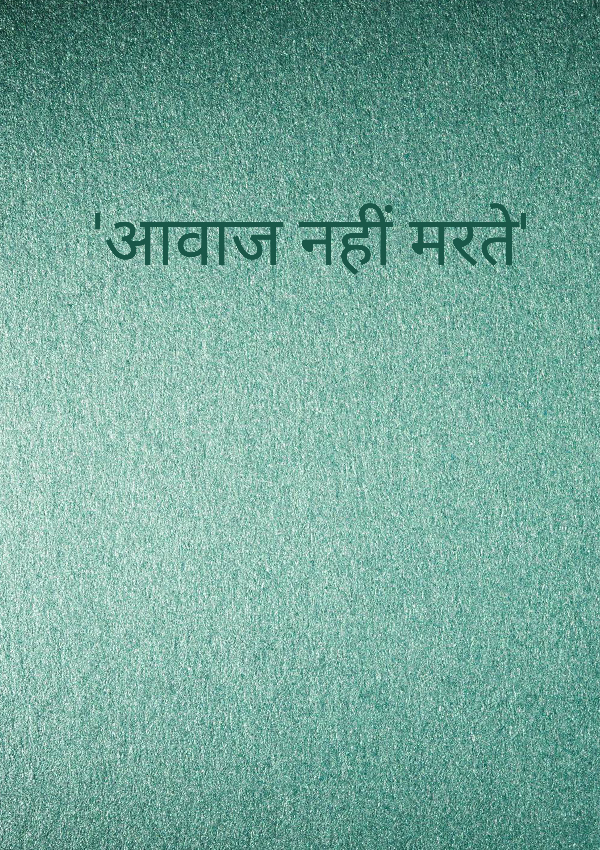 'आवाज नहीं मरते'